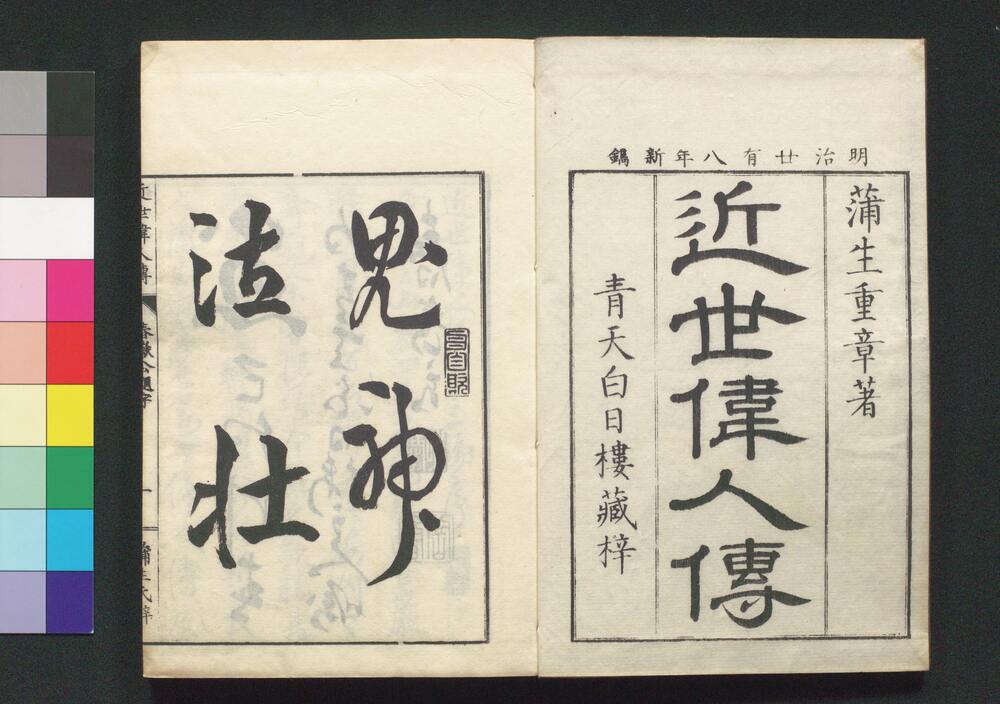 明治廿有八年新鐫
蒲生重章著
近世偉人傳
青天白日樓藏梓
鬼神
泣壯
近世偉人傳
一
蒲生氏梓